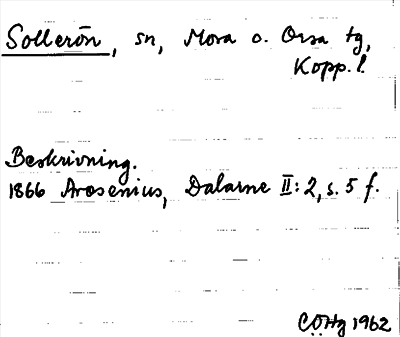 Sollerön, sn, Mora o. Orsa tg,
Kopp. l.
Beskrivning.
1866 Arosenius, Dalarne II:2, s. 5 f.
CÖHg 1962